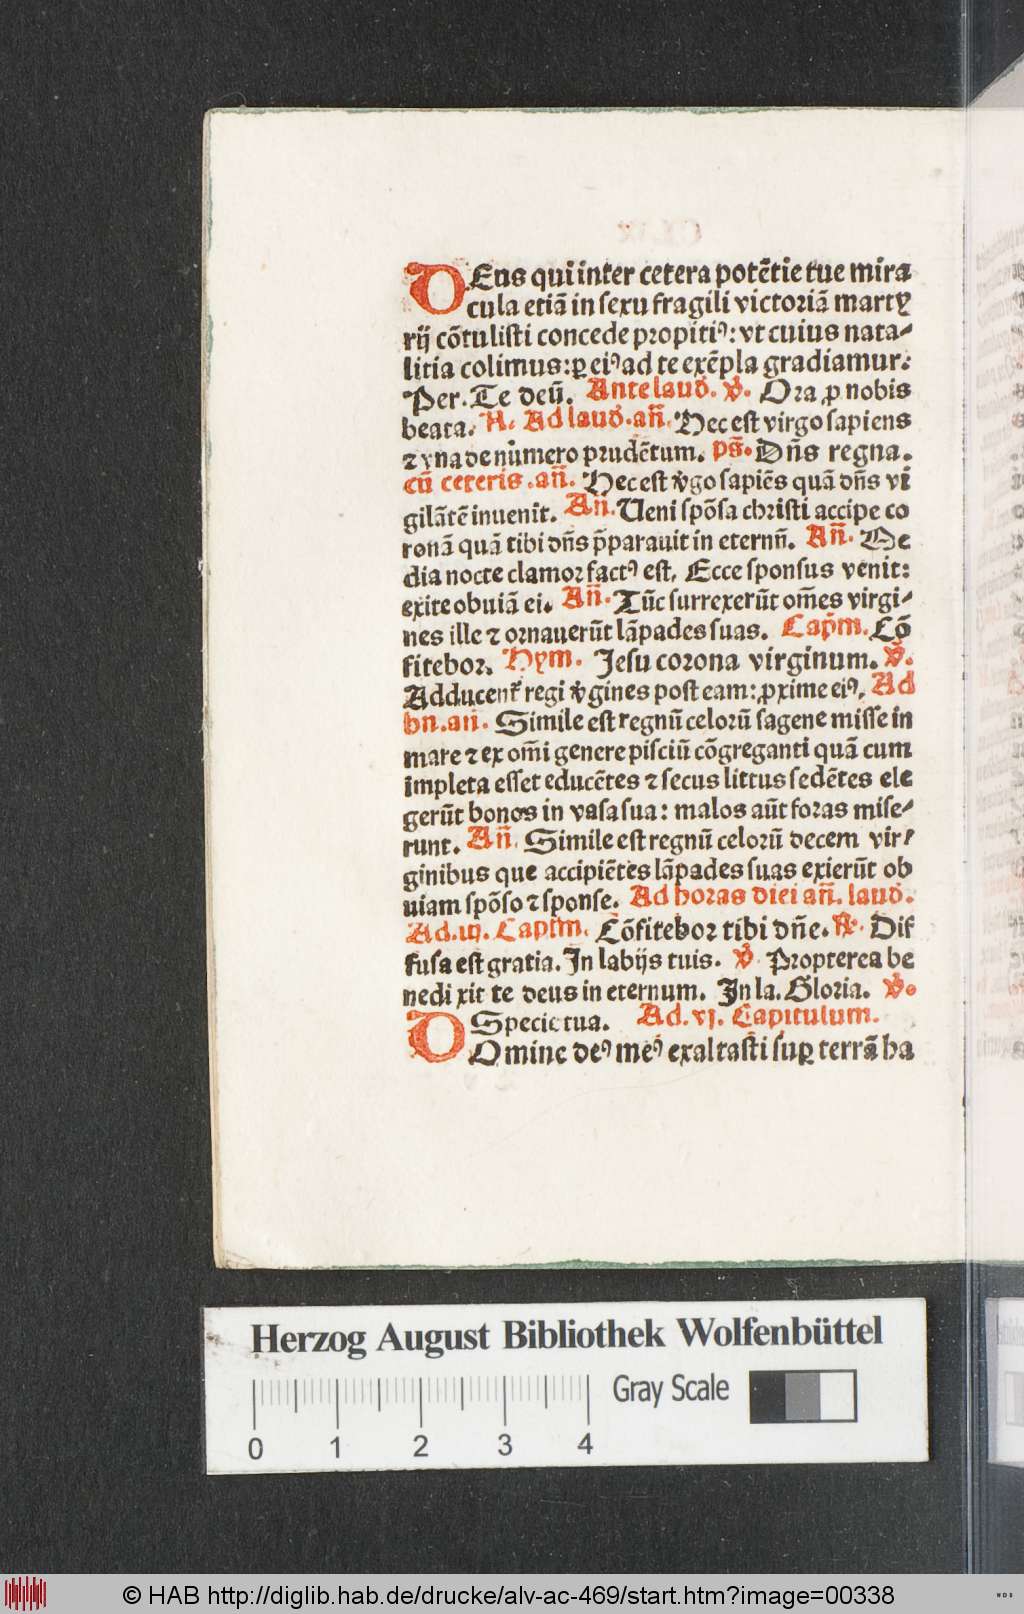 DEus qui inter cetera potētie tue mira
cula etiā in sexu fragili victoriā martyꝝ
rij cōtulisti concede propitiꝰ: vt cuius nata-
litia colimus: ꝑ eiꝰ ad te exēpla gradiamur.
Per. Te deū. Ante laud. ꝟ. Ora ꝓ nobis
beata. R. Ad laud. an̄. Hec est virgo sapiens
⁊ vna de numero prudētum. ps̄. Dn̄s regna.
cū ceteris .an̄. Hec est ꝟgo sapiēs quā dn̄s vi
gilātē inuenit. An̄. Ueni spōsa christi accipe co
ronā quā tibi dn̄s p̄parauit in eternū. An̄. Me
dia nocte clamor factꝰ est, Ecce sponsus venit:
exite obuiā ei. An̄. Tūc surrexerūt om̄es virgi-
nes ille ⁊ ornauerūt lāpades suas. Capm̄. Cō
fitebor. Hym. Jesu corona virginum. ꝟ.
Adducent᷑ regi ꝟgines post eam: ꝓxime eiꝰ. Ad
bn̄. an̄. Simile est regnū celorū sagene misse in
mare ⁊ ex om̄i genere pisciū cōgreganti quā cum
impleta esset educētes ⁊ secus littus sedētes ele
gerūt bonos in vasa sua: malos aūt foras mise-
runt. An̄. Simile est regnū celorū decem vir-
ginibus que accipiētes lāpades suas exierūt ob
uiam spōso ⁊ sponse. Ad horas diei an̄. laud.
Ad .iij. Captm̄. Cōfitebor tibi dn̄e. R. Dif
fusa est gratia. In labijs tuis. ꝟ. Propterea be
nedixit te deus in eternum. In la. Gloria. ꝟ.
Specie tua. Ad .vj. Capitulum.
DOmine deꝰ meꝰ exaltasti suꝑ terrā ha
Herzog August Bibliothek Wolfenbüttel
Gray Scale
0 1 2 3 4
© HAB http://diglib.hab.de/drucke/alv-ac-469/start.htm?image=00338